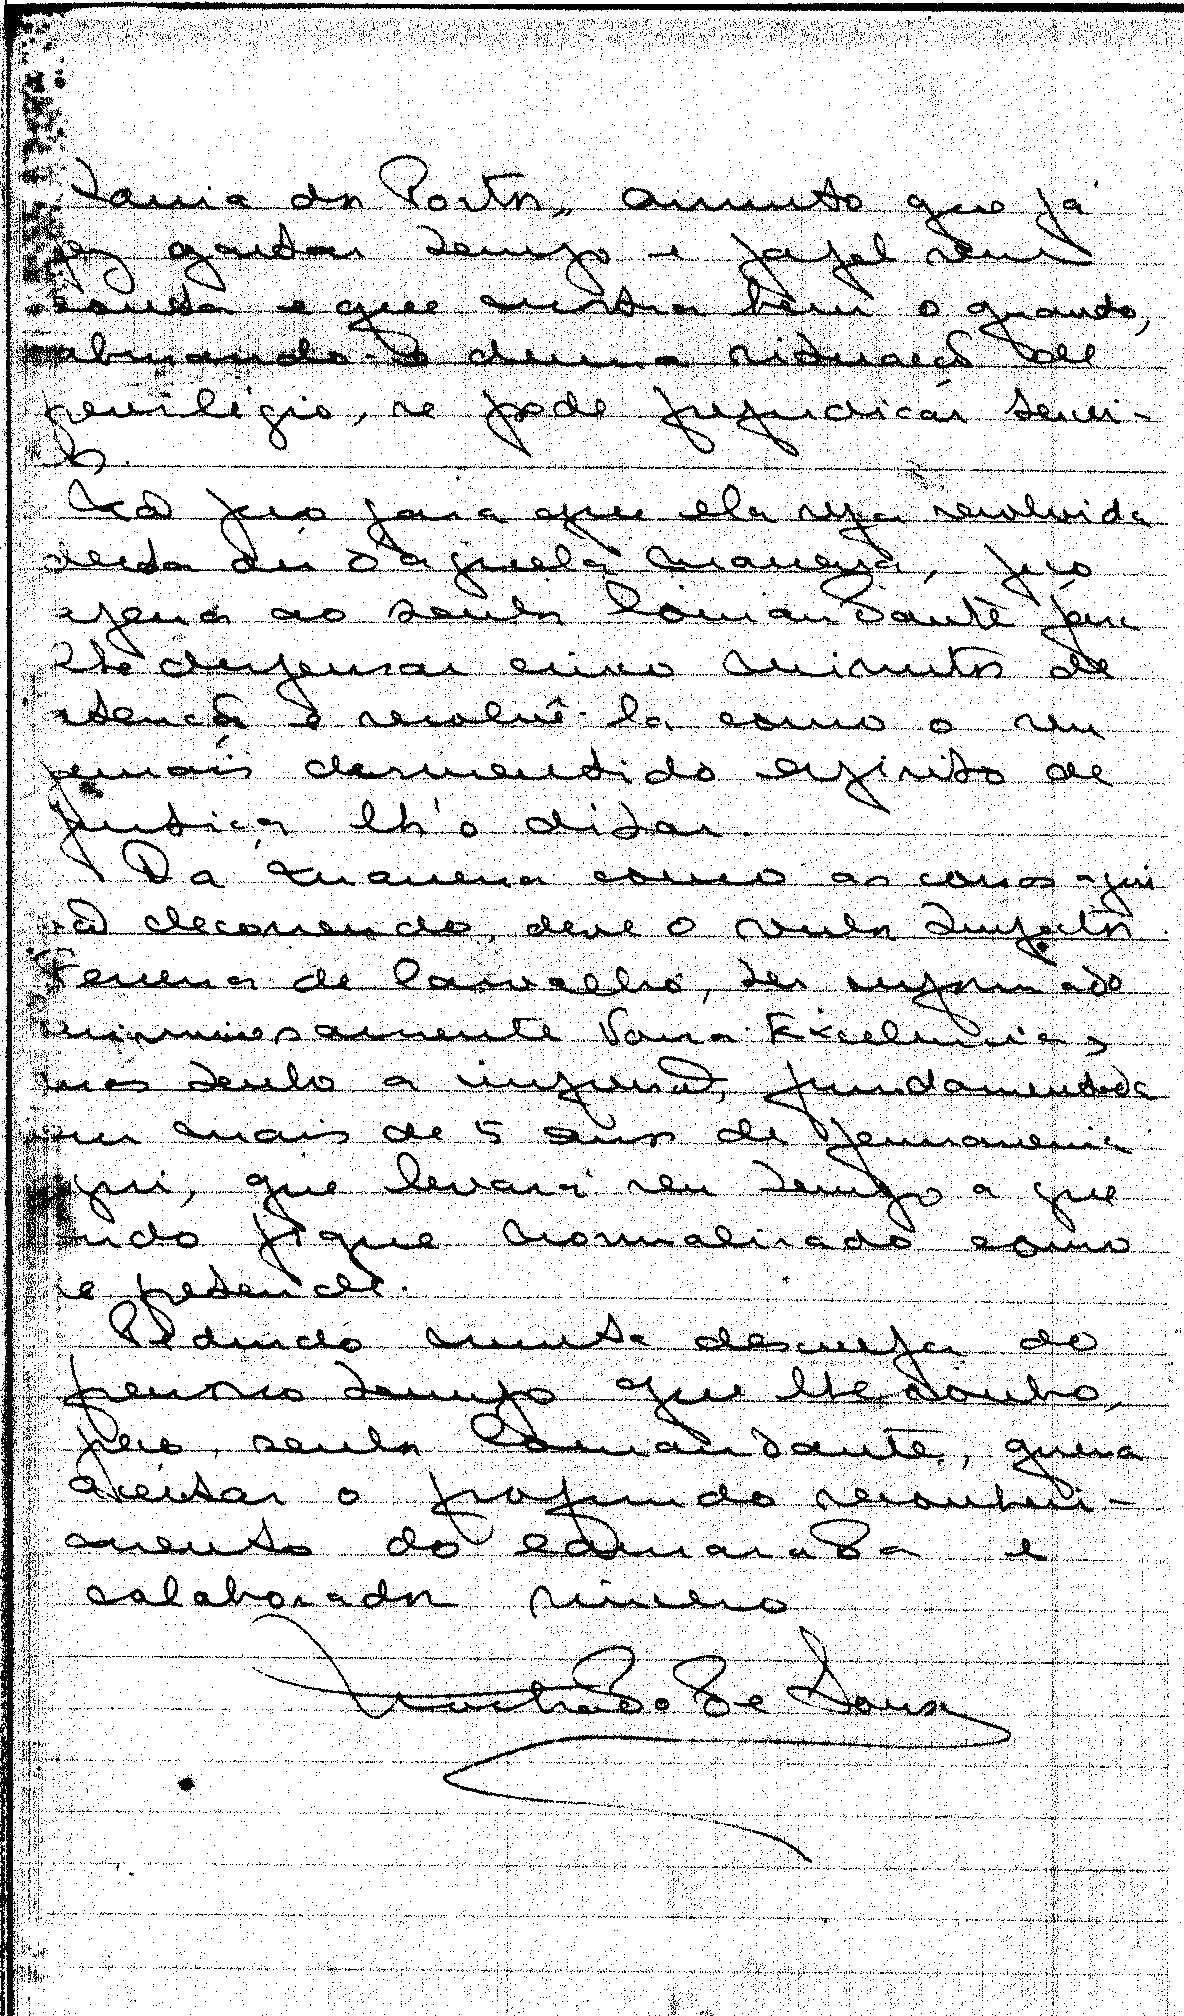 tania dos Portos, assunto que já
fez gastar tempo e papel sem
conta e que mostra bem o quanto,
abusando-se duma situação de
previlégio, se pode prejudicar servi-
ços.
Não peço para que ela seja resolvida
desta ou daquela maneira, peço
apenas ao senhor Comandante para
lhe dispensar cinco minutos de
atenção e resolvê-la como o seu
jamais desmentido espírito de
justiça lh'o ditar.
Da maneira como as coisas aqui
vão decorrendo, deve o senhor Inspector
Ferreira de Carvalho, ter informado
minuciosamente Vossa Excelência,
mas tenho a impressão, fundamentada
em mais de 5 anos de permanência
aqui, que levará seu tempo a que
tudo fique normalizado como
se pretende.
Pedindo muita desculpa do
precioso tempo que lhe roubo,
peço, senhor Comandante, queira
aceitar o profundo reconheci-
mento do camarada e
colaborador sincero
Machado de Sousa